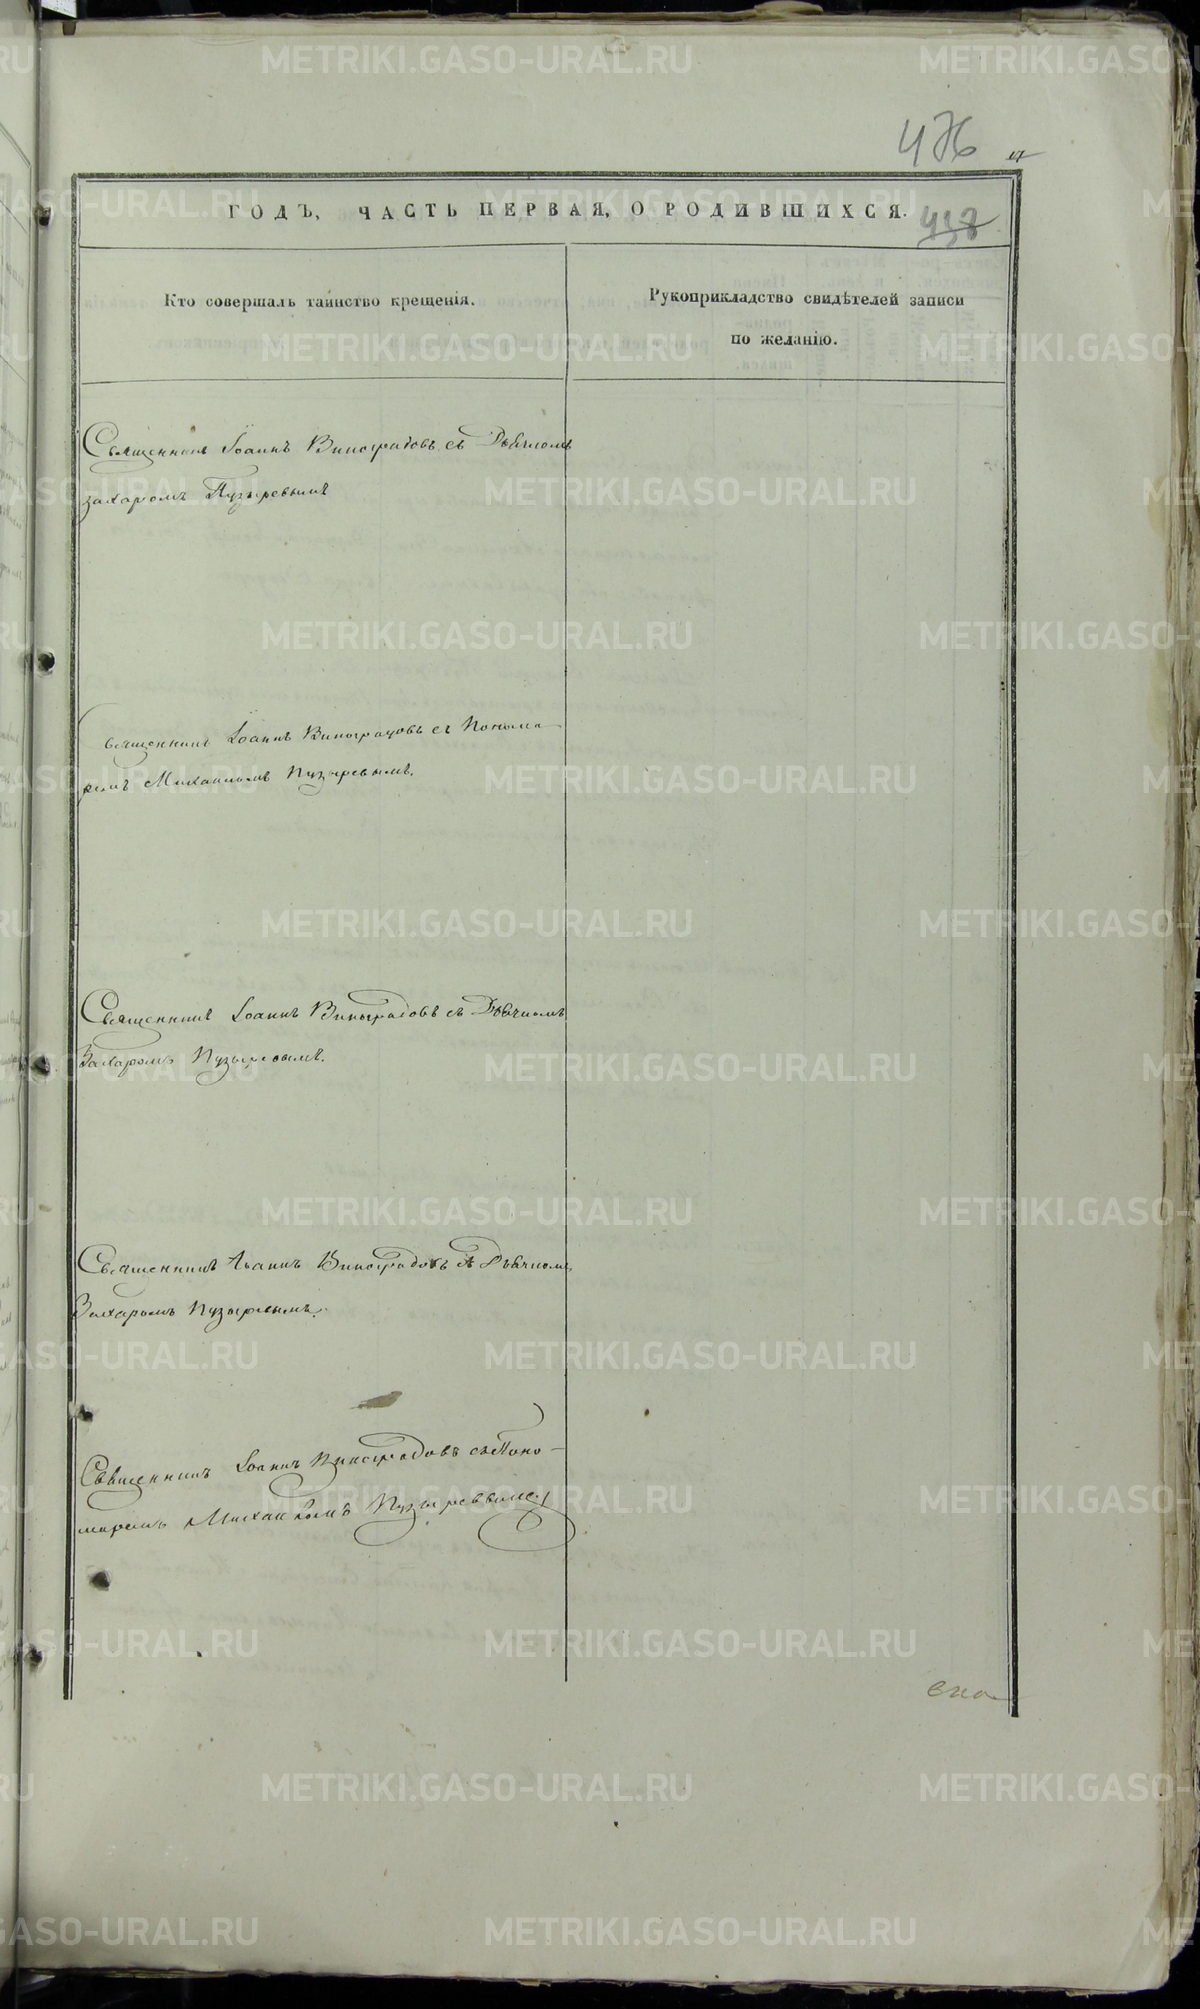 476
ГОДЪ, ЧАСТЬ ПЕРВАЯ, О РОДИВШИХСЯ.
438
Кто совершалъ таинство крещенія.
Рукоприкладство свидѣтелей записи
по желанію.
Священникъ Іоаннъ Виноградовъ съ Дьячкомъ
Захаромъ Пузыревымъ
Священникъ Іоаннъ Виноградовъ съ Понома-
ремъ Михаиломъ Пузыревымъ.
Священникъ Іоаннъ Виноградовъ съ Дьячкомъ
Захаромъ Пузыревымъ.
Священникъ Іоаннъ Виноградовъ съ Дьячкомъ
Захаромъ Пузыревымъ.
Священникъ Іоаннъ Виноградовъ съ Поно-
маремъ Михаиломъ Пузыревымъ
METRIKI.GASO-URAL.RU